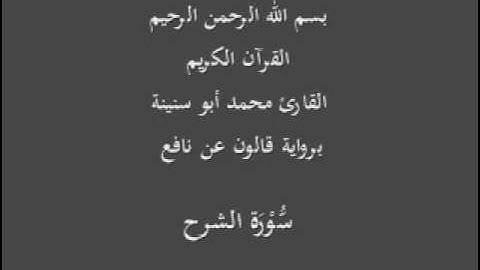 بسم الله الرحمن الرحيم
القرآن الكريم
القارئ محمد أبو سنينة
برواية قالون عن نافع
سُّوْرَة الشرح